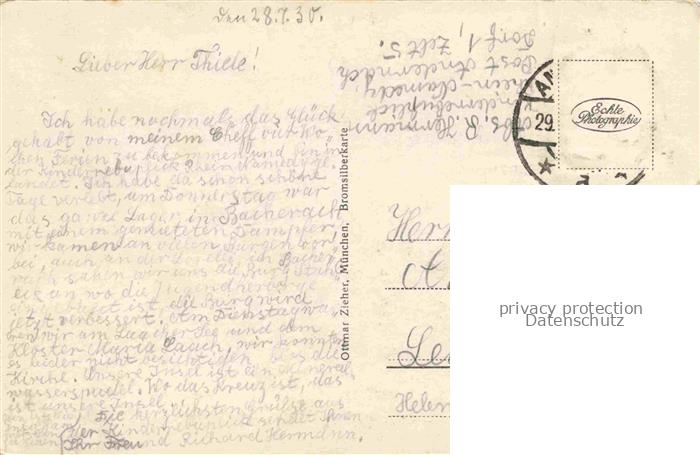 den 28.7.30.
Lieber Herr Thiele!
Ich habe nochmals das Glück
gehabt von meinem Cheff vier Wo-
chen Ferien zu bekommen und bin in
der Kinderrepublick Rhein-Namedy ge-
landet. Ich habe da schon schöne
Tage verlebt, am Donnerstag war
das ganze Lager in Bacherach
mit einem gemieteten Dampfer,
wir kamen an vielen Burgen vor-
bei, auch an der Lorelei, in Bacher-
rach sahen wir uns die Burg Stahl-
eck an wo die Jugendherberge
ist die Burg wird
jetzt verbessert. Am Dienstag wa-
ren wir am Laacher See und dem
Kloster Maria Laach, wir konnten
es leider nicht besichtigen bloß die
Kirche. Unsere Insel ist ein Mineral-
wassersprudel. Wo das Kreuz ist, das
ist unsere Insel.
Die herzlichsten Grüße aus
der Kinderrepublick sendet Ihnen
Ihr Freund Richard Hermann.
Abs. R. Hermann
Kinderrepublick
Rhein-Namedy
Post Andernach
Dorf 1, Zelt 5.
Ottmar Zieher, München, Bromsilberkarte
Echte
Photographie
AN
29
Herrn
Helen
privacy protection
Datenschutz